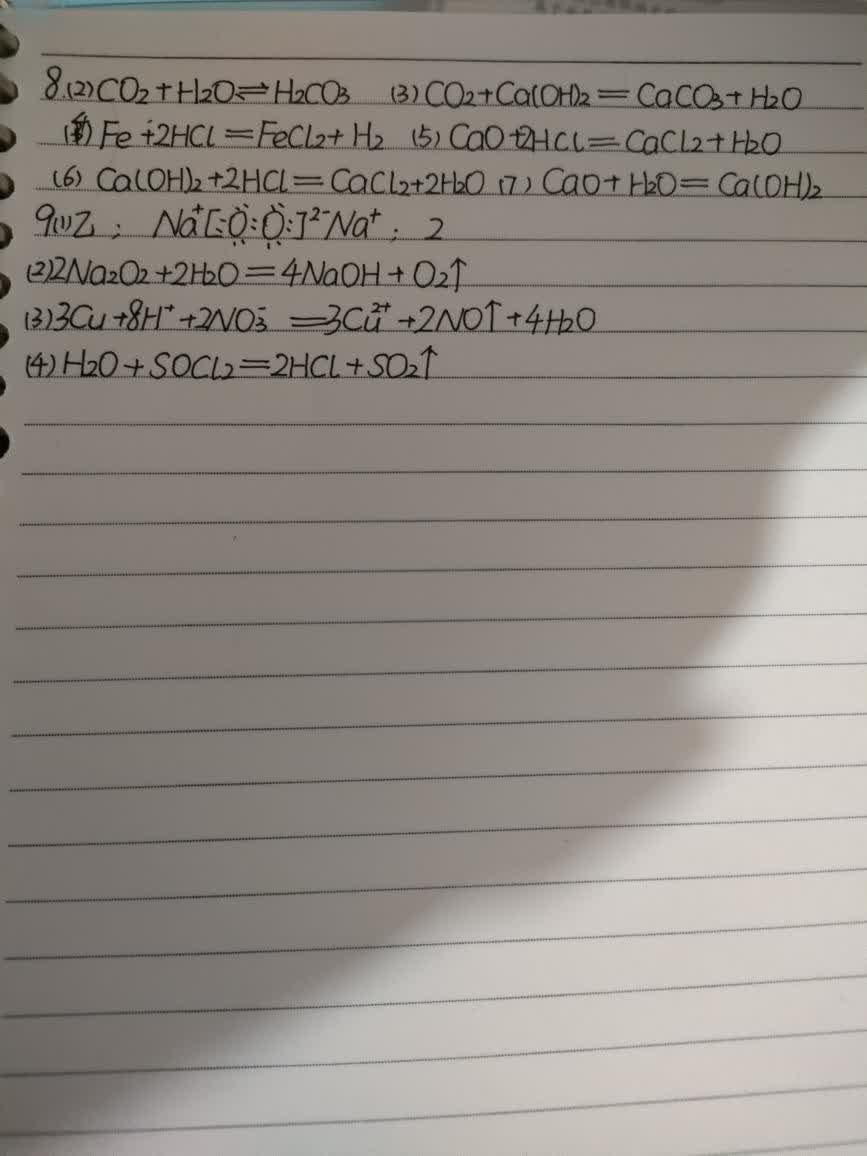 8.(2)CO₂+H₂O⇌H₂CO₃ (3)CO₂+Ca(OH)₂=CaCO₃+H₂O
(4)Fe+2HCl=FeCl₂+H₂ (5)CaO+2HCl=CaCl₂+H₂O
(6)Ca(OH)₂+2HCl=CaCl₂+2H₂O (7)CaO+H₂O=Ca(OH)₂
9(1)乙; Na⁺[:Ö:Ö:]²⁻Na⁺; 2
(2)2Na₂O₂+2H₂O=4NaOH+O₂↑
(3)3Cu+8H⁺+2NO₃⁻=3Cu²⁺+2NO↑+4H₂O
(4)H₂O+SOCl₂=2HCl+SO₂↑